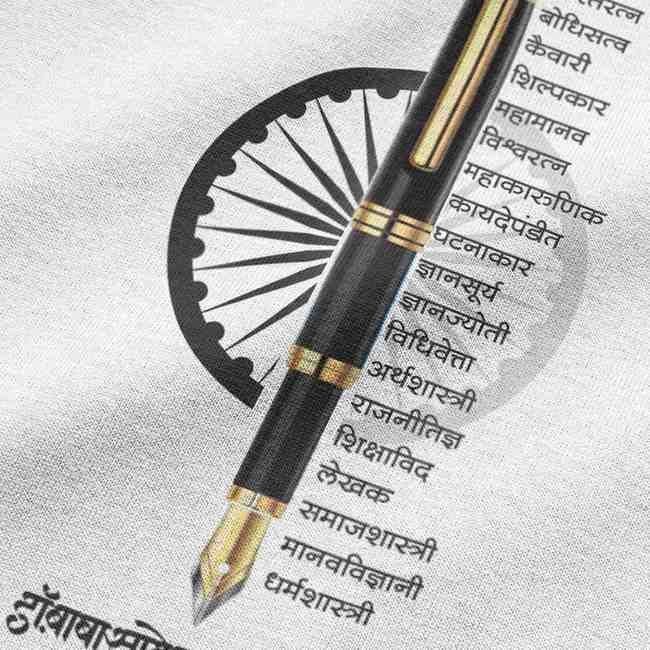 बोधिसत्व
कैवारी
शिल्पकार
महामानव
विश्वरत्न
महाकारुणिक
कायदेपंडीत
घटनाकार
ज्ञानसूर्य
ज्ञानज्योती
विधिवेत्ता
अर्थशास्त्री
राजनीतिज्ञ
शिक्षाविद
लेखक
समाजशास्त्री
मानवविज्ञानी
धर्मशास्त्री